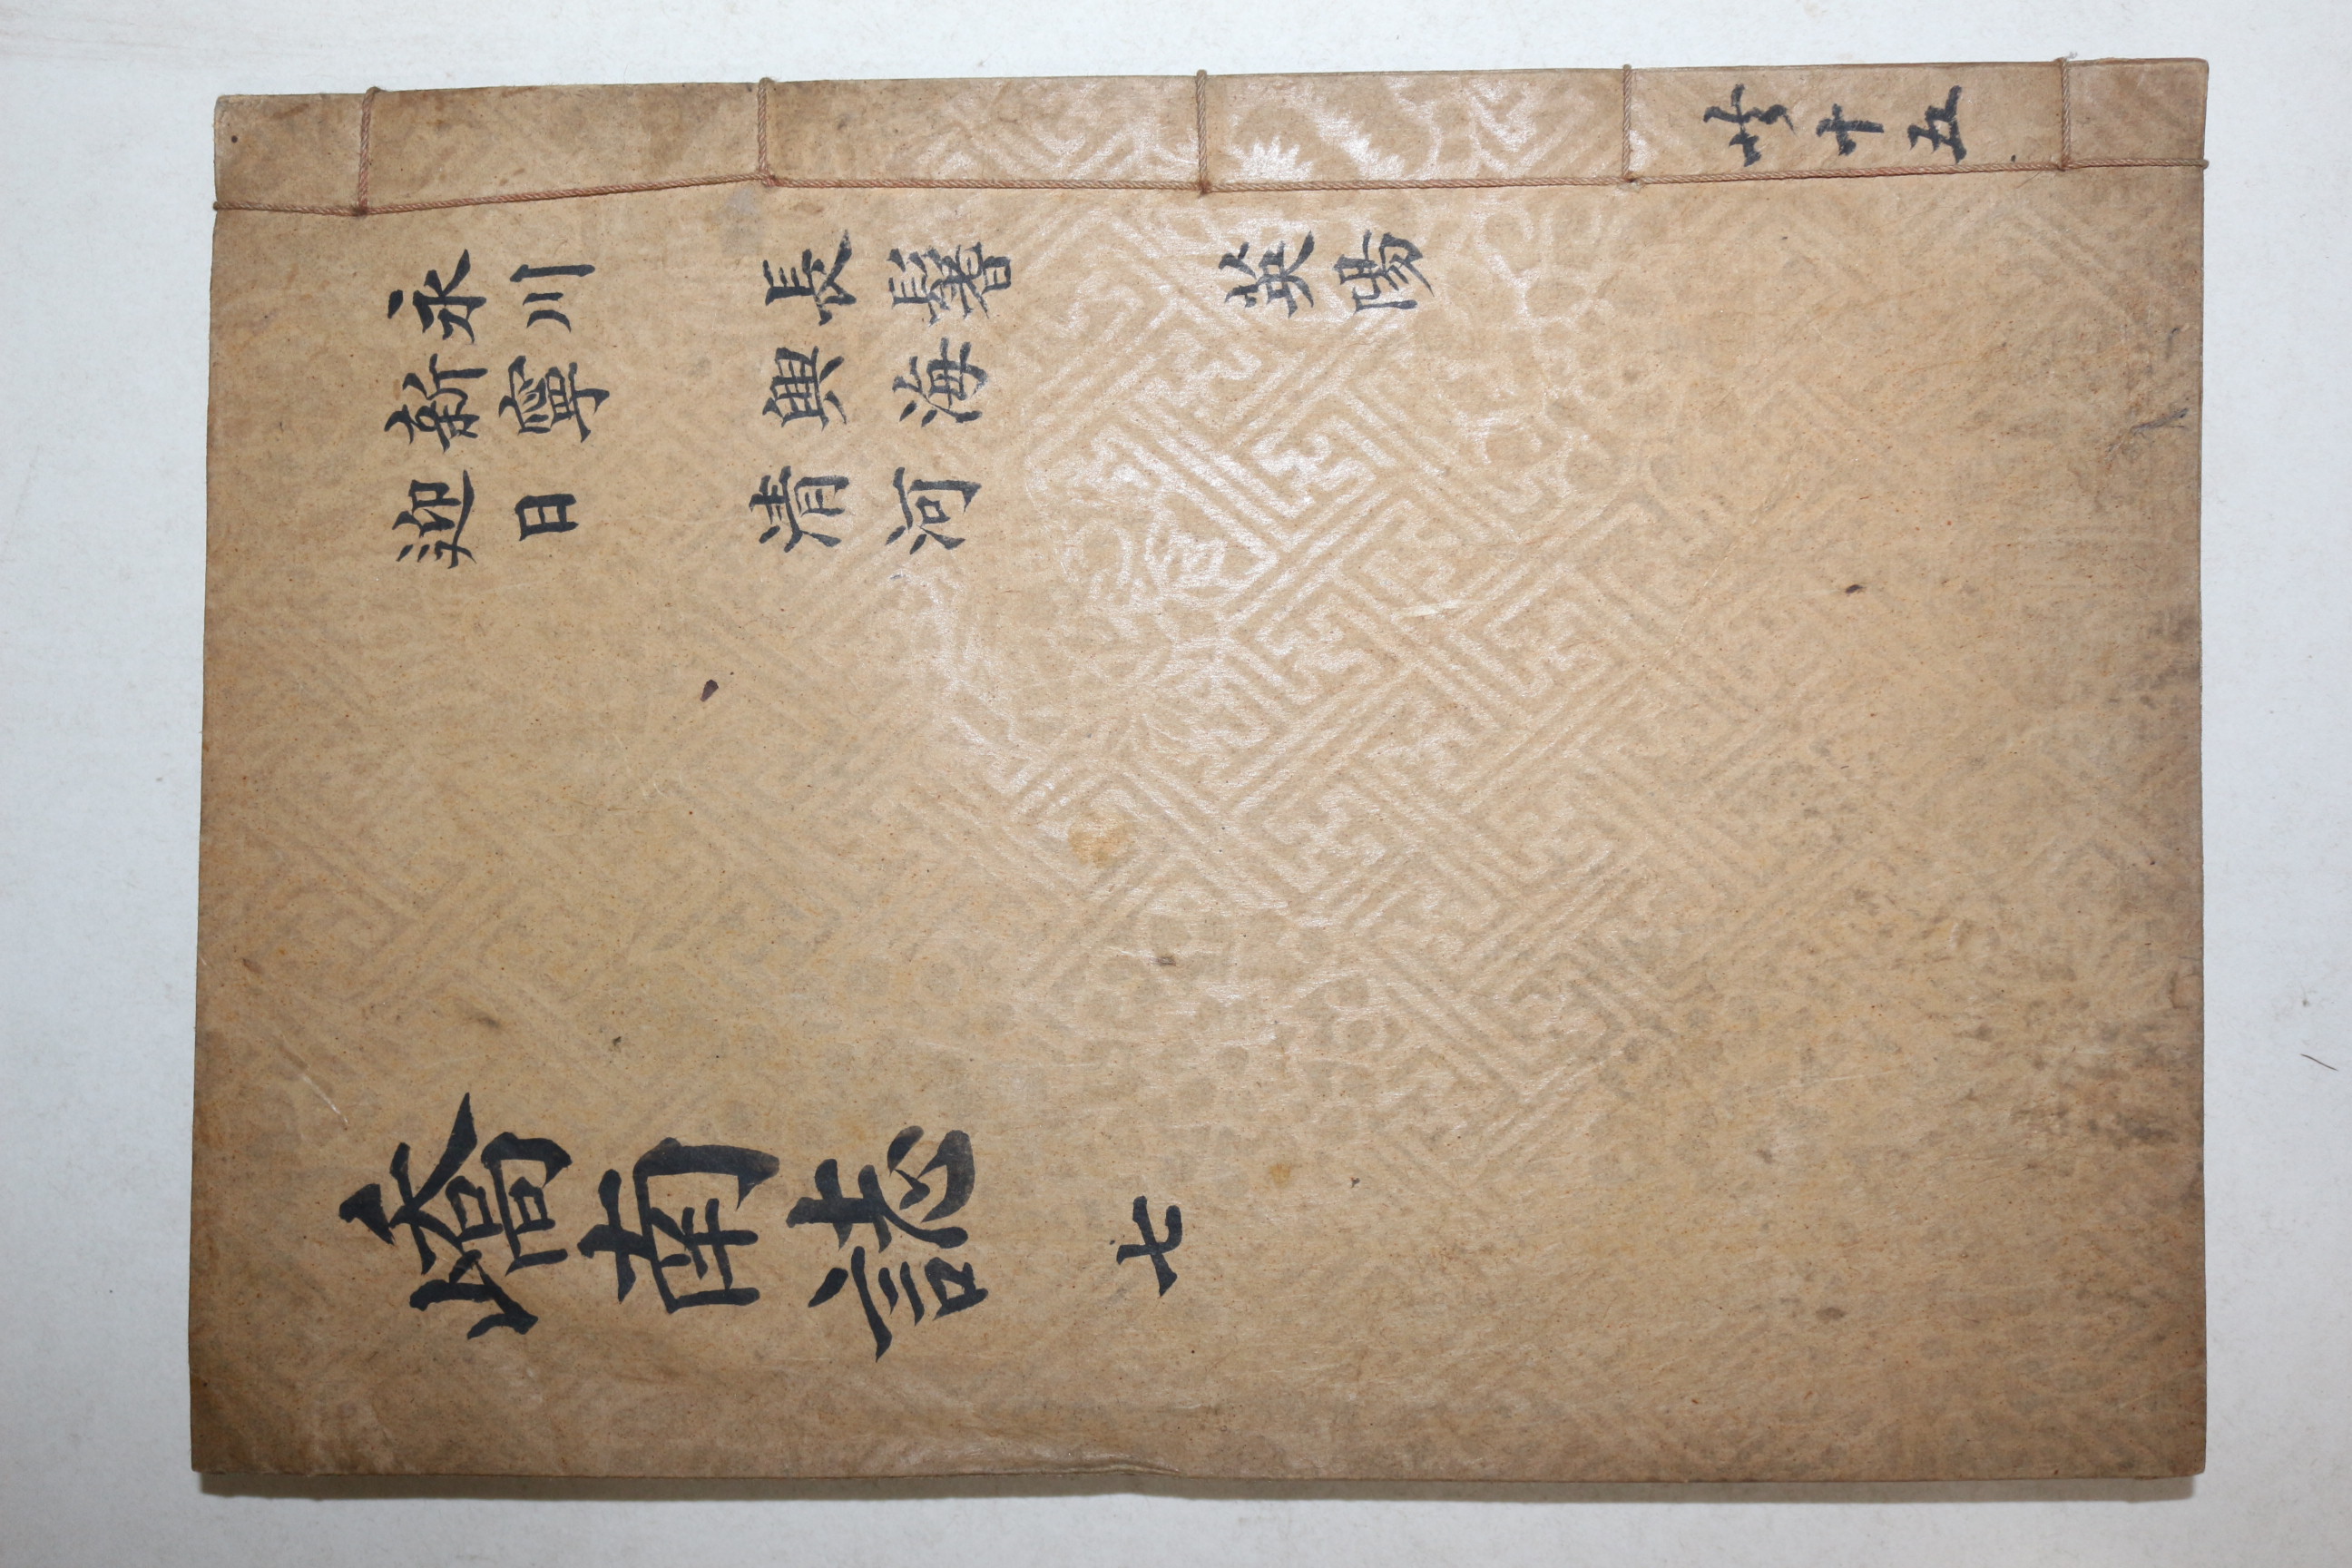 共十五
永川 長鬐 英陽
新寧 興海
迎日 清河
嶠南誌 七